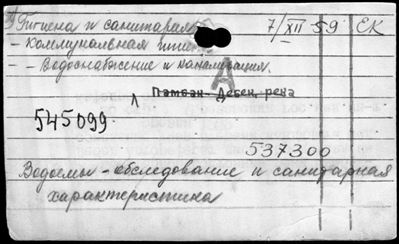 Гигиена и санитария 7/XII 59 ЕК
- Коммунальная гигиена
- - Водоснабжение и канализация.
А
Памбак-Дебед, река
545099
537300
Водоемы - обследование и санитарная
характеристика